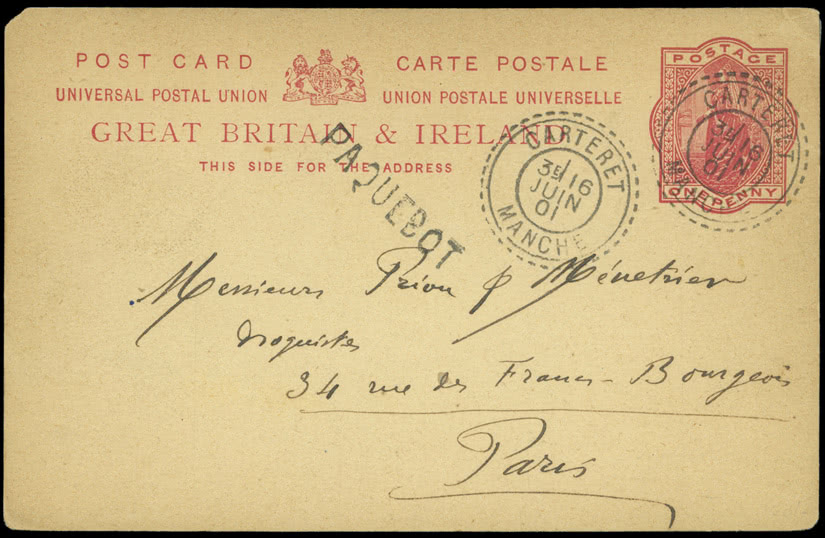 POST CARD CARTE POSTALE
UNIVERSAL POSTAL UNION UNION POSTALE UNIVERSELLE
GREAT BRITAIN & IRELAND
THIS SIDE FOR THE ADDRESS
POSTAGE
ONE PENNY
PAQUEBOT
CARTERET
3E/16
JUIN
01
MANCHE
CARTERET
3E/16
JUIN
01
MANCHE
Messieurs Prion & Ménetrier
Droguistes
34 rue des Francs-Bourgeois
Paris